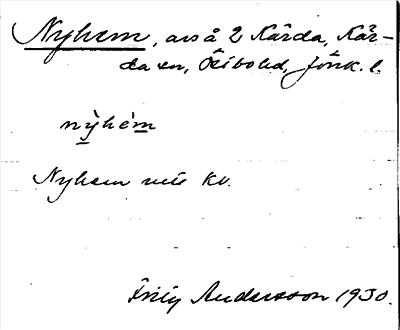 Nyhem, avs å 2 Kärda, Kär-
da sn, Östbo hd, Jönk. l.
nỳhém
Nyhem
Andersson 1930.